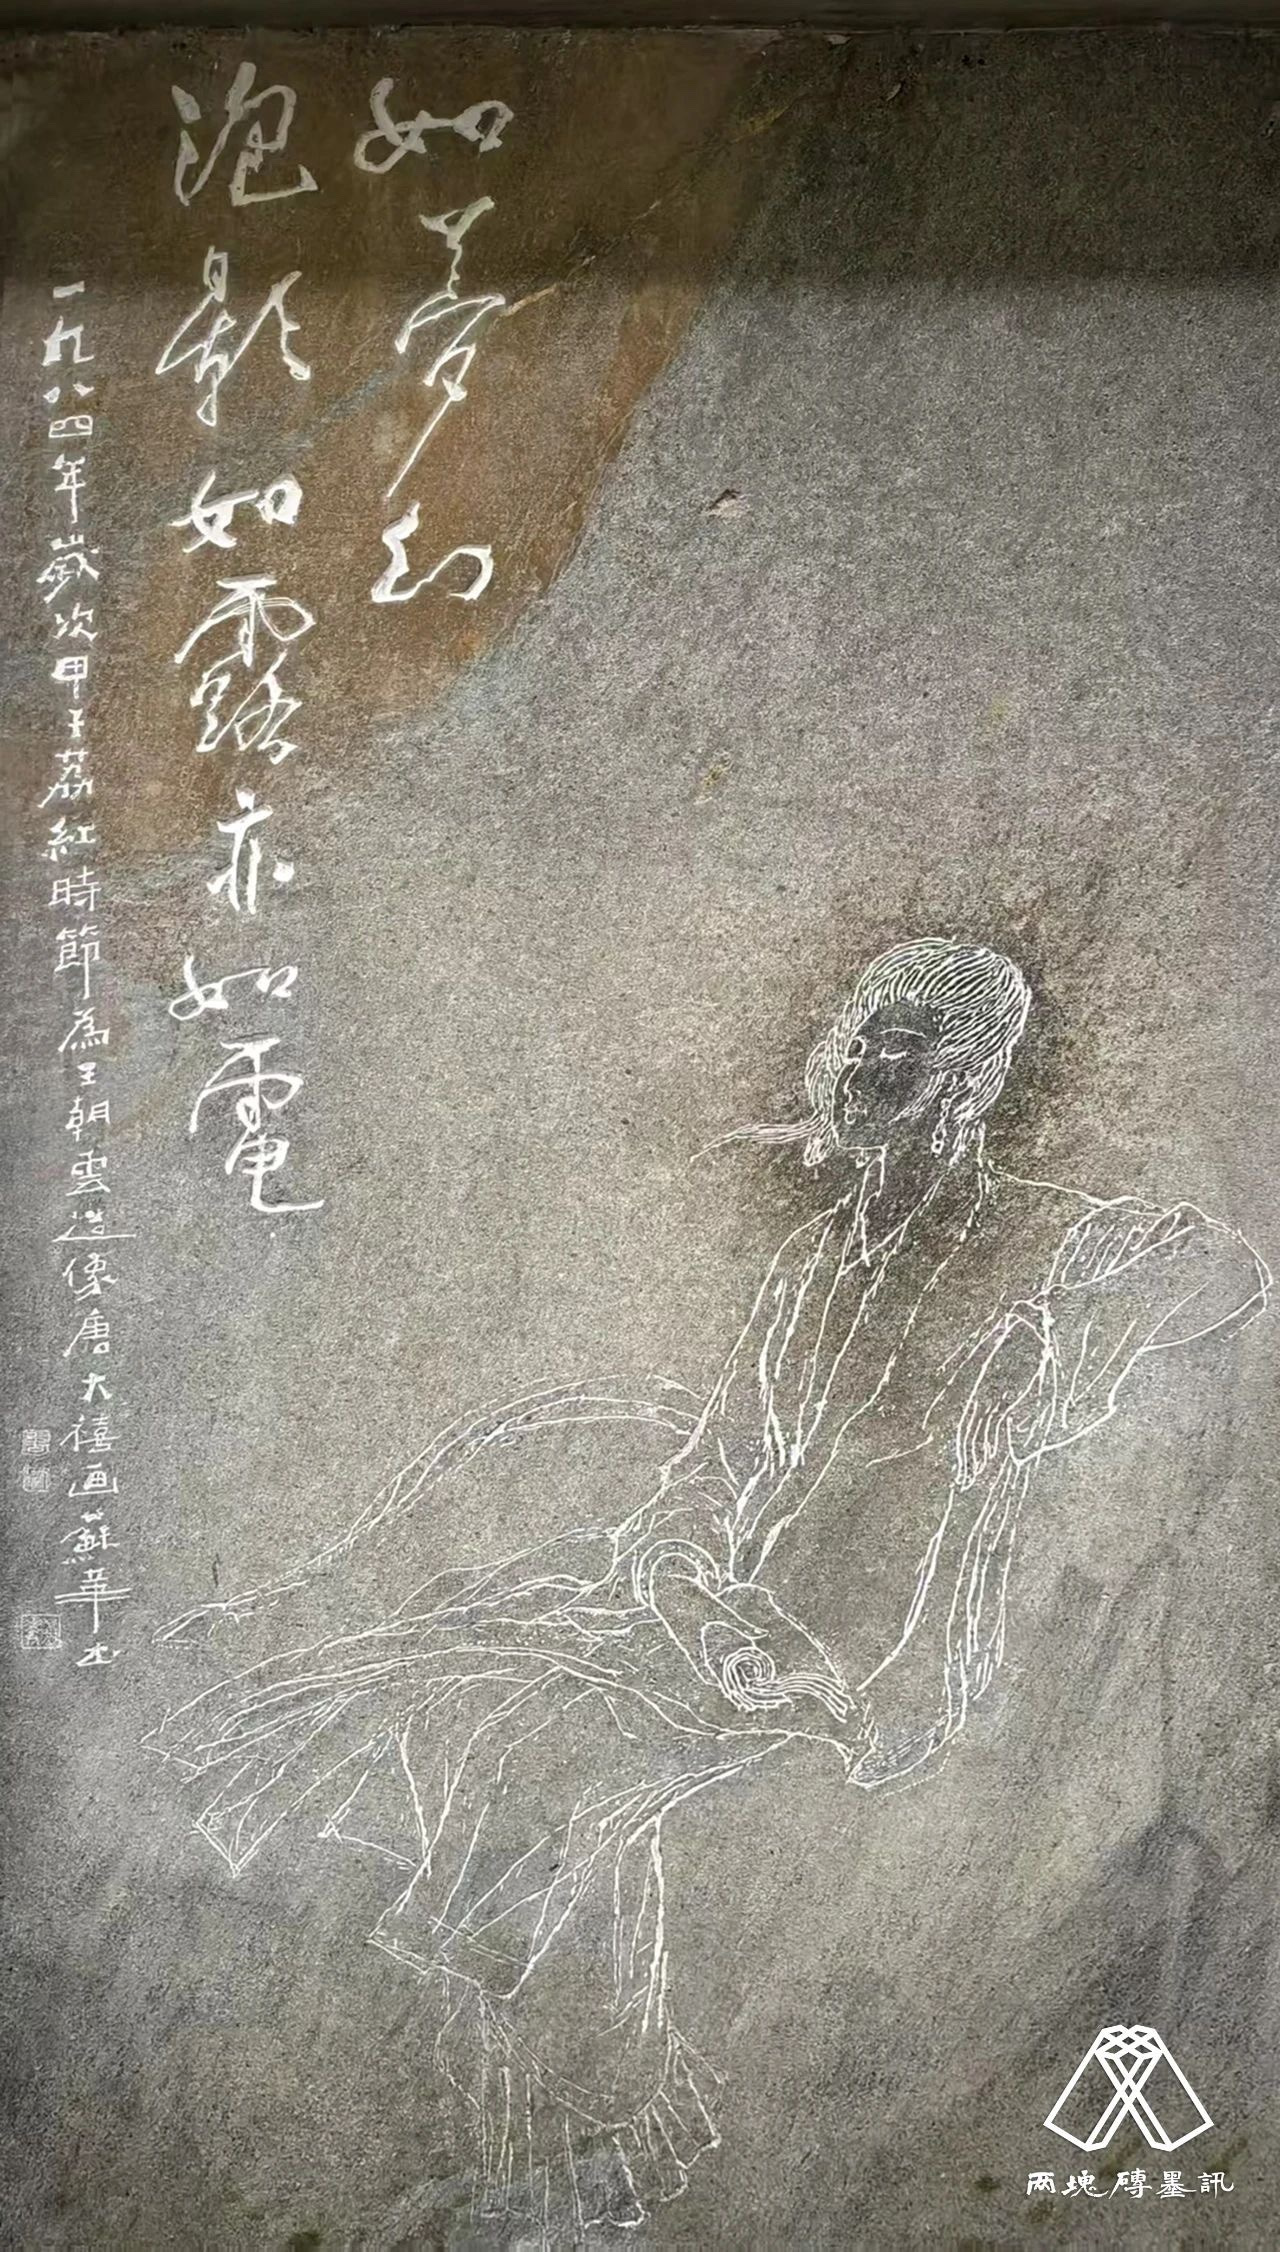 如夢幻
泡影如露亦如電
一九八四年歲次甲子荔紅時節為王朝雲造像唐大禧画蘇華书
两塊磚墨訊